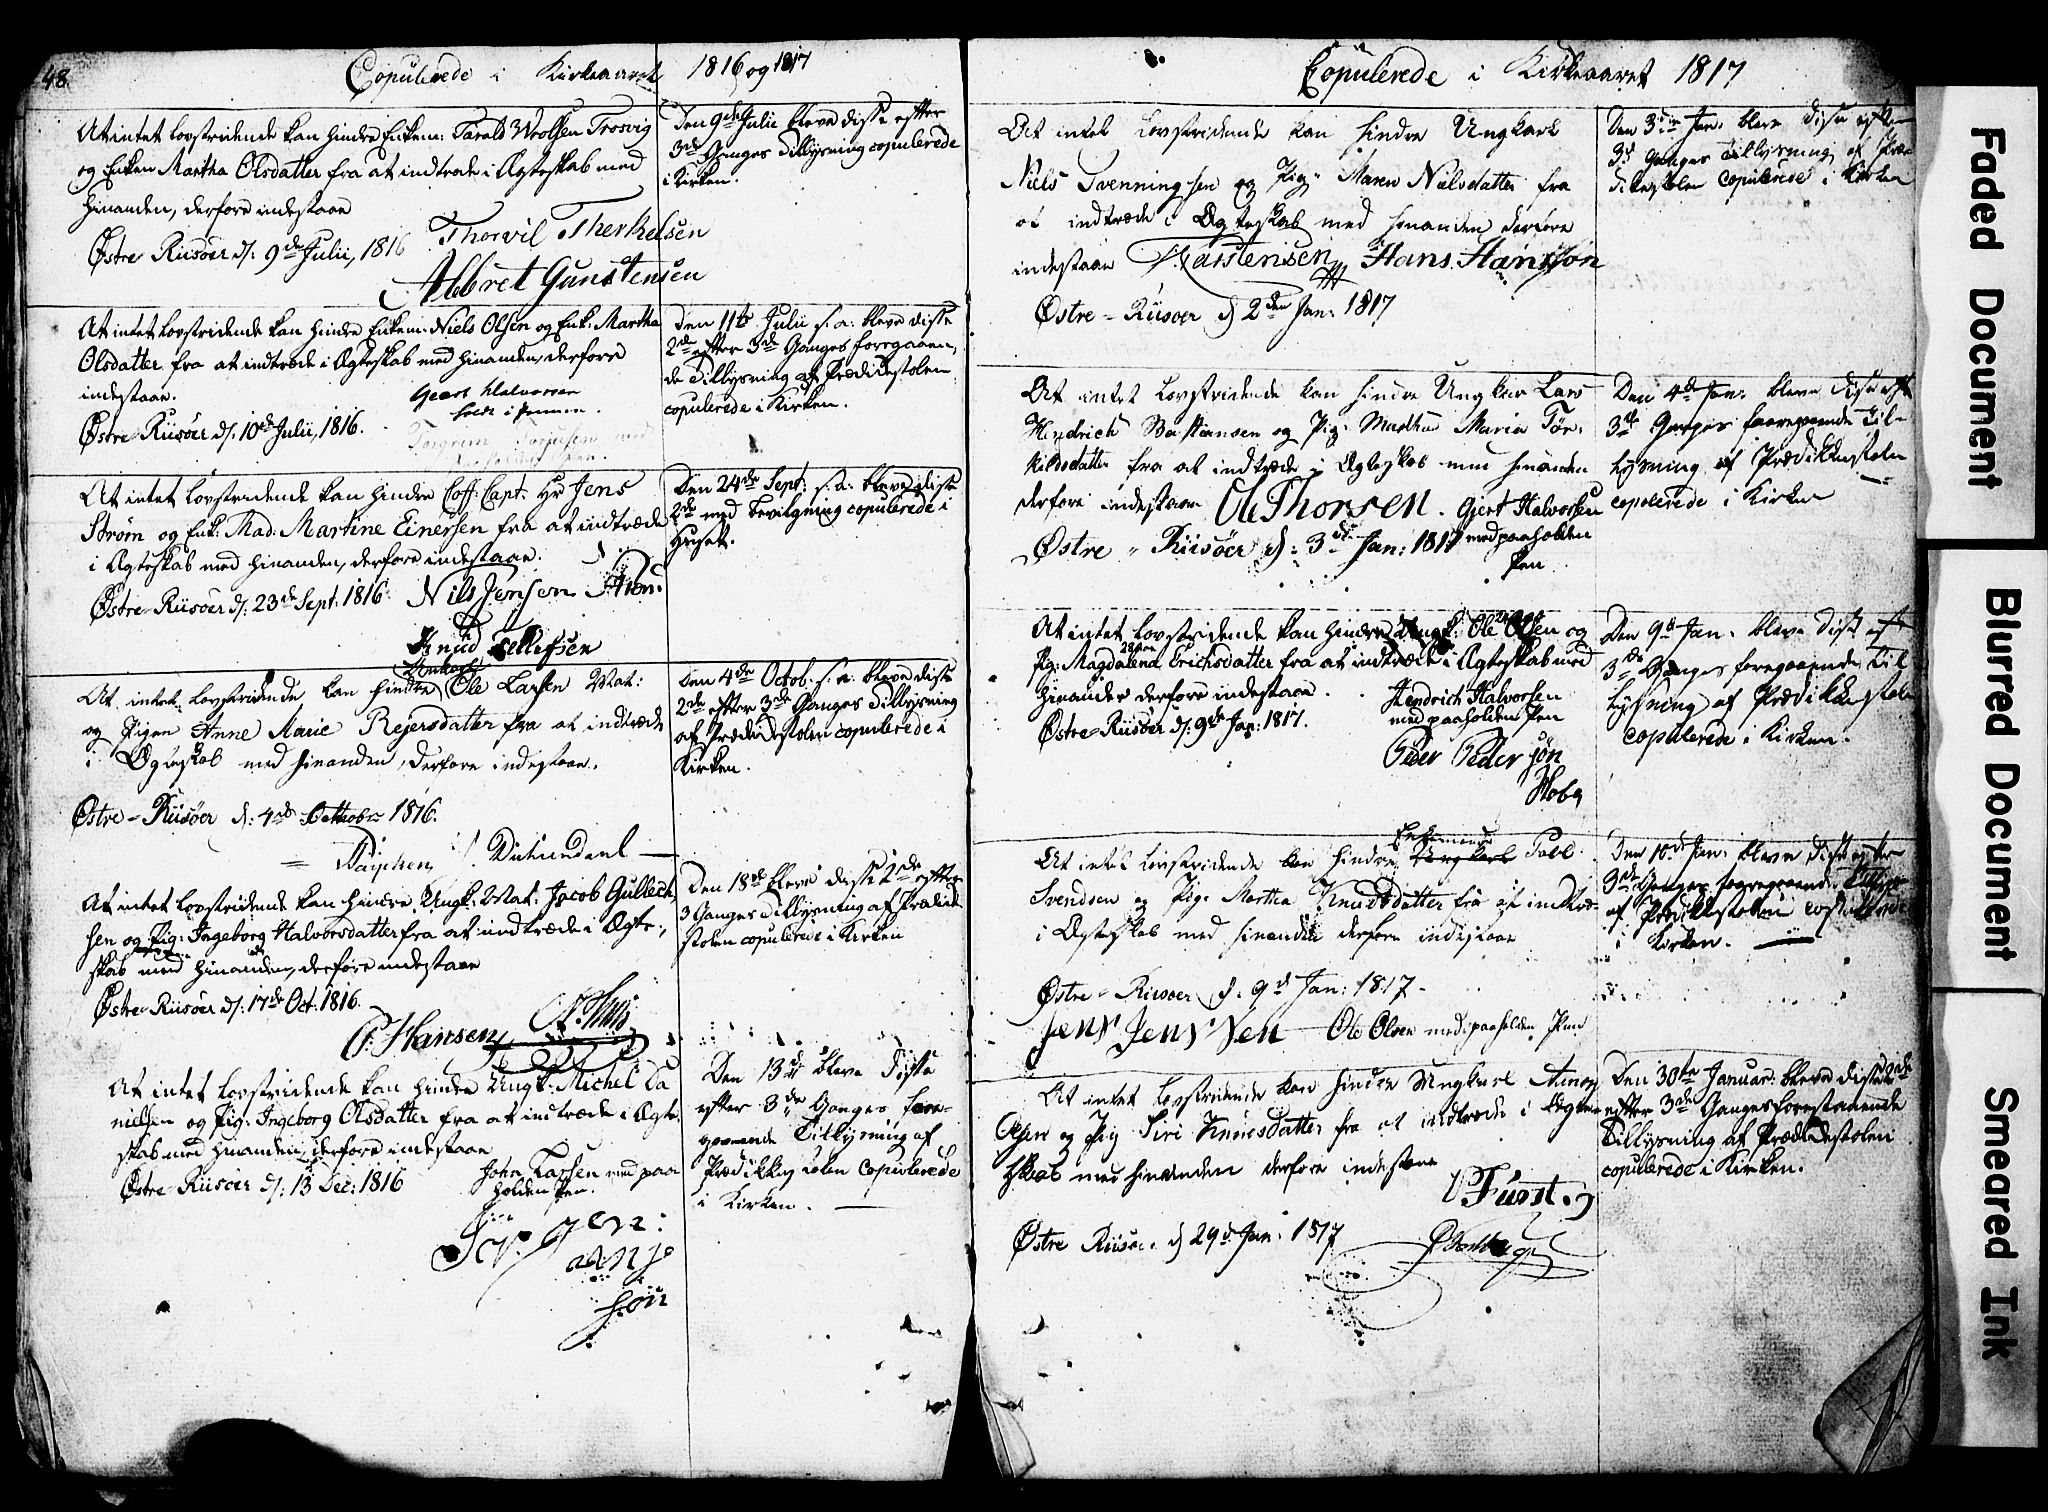 48.
Copulerede i Kirkeaaret 1816 og 1817
At intet lovstridende kan hindre Enkem: Tarald Woolsen Trosvig
og Enken Martha Olsdatter fra at indtræde i Ægteskab med
hinanden, derfore indestaae
Østre-Riisöer d: 9de Julii, 1816 Thorvil Therkelsen
Albret Gunstensen
Den 9de Julii bleve disse efter
3de Ganges Tillysning copulerede
i Kirken.
At intet lovstridende kan hindre Enkem: Niels Olsen og Enk: Martha
Olsdatter fra at indtræde i Ægteskab med hinanden, derfore
indestaae.
Geert Halvorsen
holdt i Pennen.
Østre-Riisöer d: 10de Julii, 1816.
Den 11te Julii s. a. bleve disse
2de efter 3de Ganges foregaaen,
de Tillysning af Prædikestolen
copulerede i Kirken.
At intet lovstridende kan hindre Coff: Capt: Hr Jens
Ström og Enk: Mad: Martine Einersen fra at indtræde
i Ægteskab med hinanden, derfore indestaae.
Østre-Riisöer d: 23de Sept: 1816. Nils Jensen
Knud Tellefsen
Den 24de Sept: s. a. bleve disse
2de med Bevilgning copulerede i
Huset.
At intet lovstridende kan hindre Ole Larsen Mat:
og Pigen Anne Marie Rejersdatter fra at indtræde
i Ægteskab med hinanden, derfore indestaae.
Østre-Riisöer d: 4de Octtober 1816.
Den 4de Octob: s. a. bleve disse
2de efter 3de Ganges Tillysning
af Prædikestolen copulerede i
Kirken.
At intet lovstridende kan hindre Ungk: Mat: Jacob Gullech,
sen og Pig: Ingeborg Halvorsdatter fra at indtræde i Ægte-
skab med hinanden, derfore indestaae
Østre-Riisöer d: 17de Oct: 1816.
P. Hansen
Den 18de bleve disse 2de efter
3 Ganges Tillysning af Prædike
stolen copulerede i Kirken
At intet lovstridende kan hindre Ungk: Michel Da
nielsen og Pig: Ingeborg Olsdatter fra at indtræde i Ægte
skab med hinanden, derfore indestaae
Østre-Riisöer d: 13 Dec: 1816 Johan Larsen med paa
holden Pen.
Den 13de bleve disse
efter 3de Ganges fore-
gaaende Tillysning af
Prædikkestolen Copulerede
i Kirken.
Copulerede i Kirkeaaret 1817
At intet Lovstridende kan hindre Ungkarl
Niels Svenningsen og Pig: Maren Nielsdatter fra
at indtræde i Ægteskab med hinanden derfore
indestaae Karstensen Hans Hansjön
Østre-Riisöer d 2den Jan: 1817
Den 3die Jan: bleve disse efter
3d Ganges Tillysning af Præ
dikestolen Copulerede i Kirken
At intet Lovstridende kan hindre Ungkar Lars
Hendrich Bastiansen og Pig: Marthe Maria Tör-
kildsdatter fra at indtræde i Ægteskab med hinanden
derfore indestaae Ole Thorsen. Gjert Halvorsen
Østre-Riisöer d: 3die Jan: 1817 med paaholden
Pen
Den 4de Jan: bleve disse efter
3de Ganges foregaaende Til-
lysning af Prædikkestolen
copulerede i Kirken
At intet lovstridende kan hindre Ungk: Ole Olsen og
Pig: Magdalena Erichsdatter fra at indtræde i Ægteskab med
hinanden derfore indestaae. Hendrich Halvorsen
med paaholden Pen
Østre-Riisöer d: 9de Jan: 1817.
Peder Pedersön
Hobg
Den 9d Jan: bleve disse efter
3de Ganges foregaaende Til
lysning af Prædikkestolen
copulerede i Kirken.
Enkemand
At intet lovstridende kan hindre Ungkarl
Svendsen og Pig: Martha Knudsdatter fra at indtræ-
i Ægteskab med hinanden derfore indestaae
Østre-Riisöer d: 9d Jan: 1817.
Jens Jensen Ole Olsen med paaholden Pen
Den 10de Jan: bleve disse efter
3de Ganges foregaaende Tillysn:
af Prædikkestolen copulerede
i Kirken.
At intet lovstridende kan hindre Ungkarl
Olsen og Pig Siri Knudsdatter fra at indtræde i Ægte
skab med hinanden derfore indestaae
Fürst
Østre Riisöe. d 29d Jan: 1817
Den 30te Januar: bleve disse 2de
efter 3de Ganges forestaaende
Tillysning af Prædikestolen
copulerede i Kirken.
Faded Document
Blurred Document
Smeared Ink